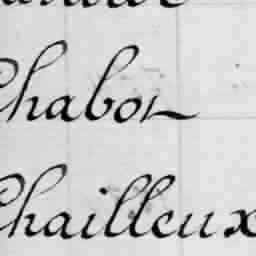 Chabot
Chailleux